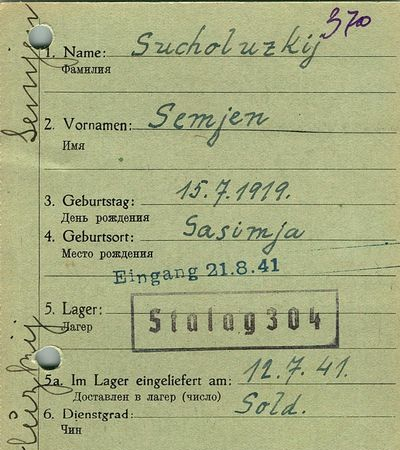 370
1. Name: Sucholuzkij
Фамилия
2. Vornamen: Semjen
Имя
3. Geburtstag: 15.7.1919.
День рождения
4. Geburtsort: Sasimja
Место рождения
Eingang 21.8.41
5. Lager: Stalag 304
Лагер
5a. Im Lager eingeliefert am: 12.7.41.
Доставлен в лагер (число)
6. Dienstgrad: Sold.
Чин